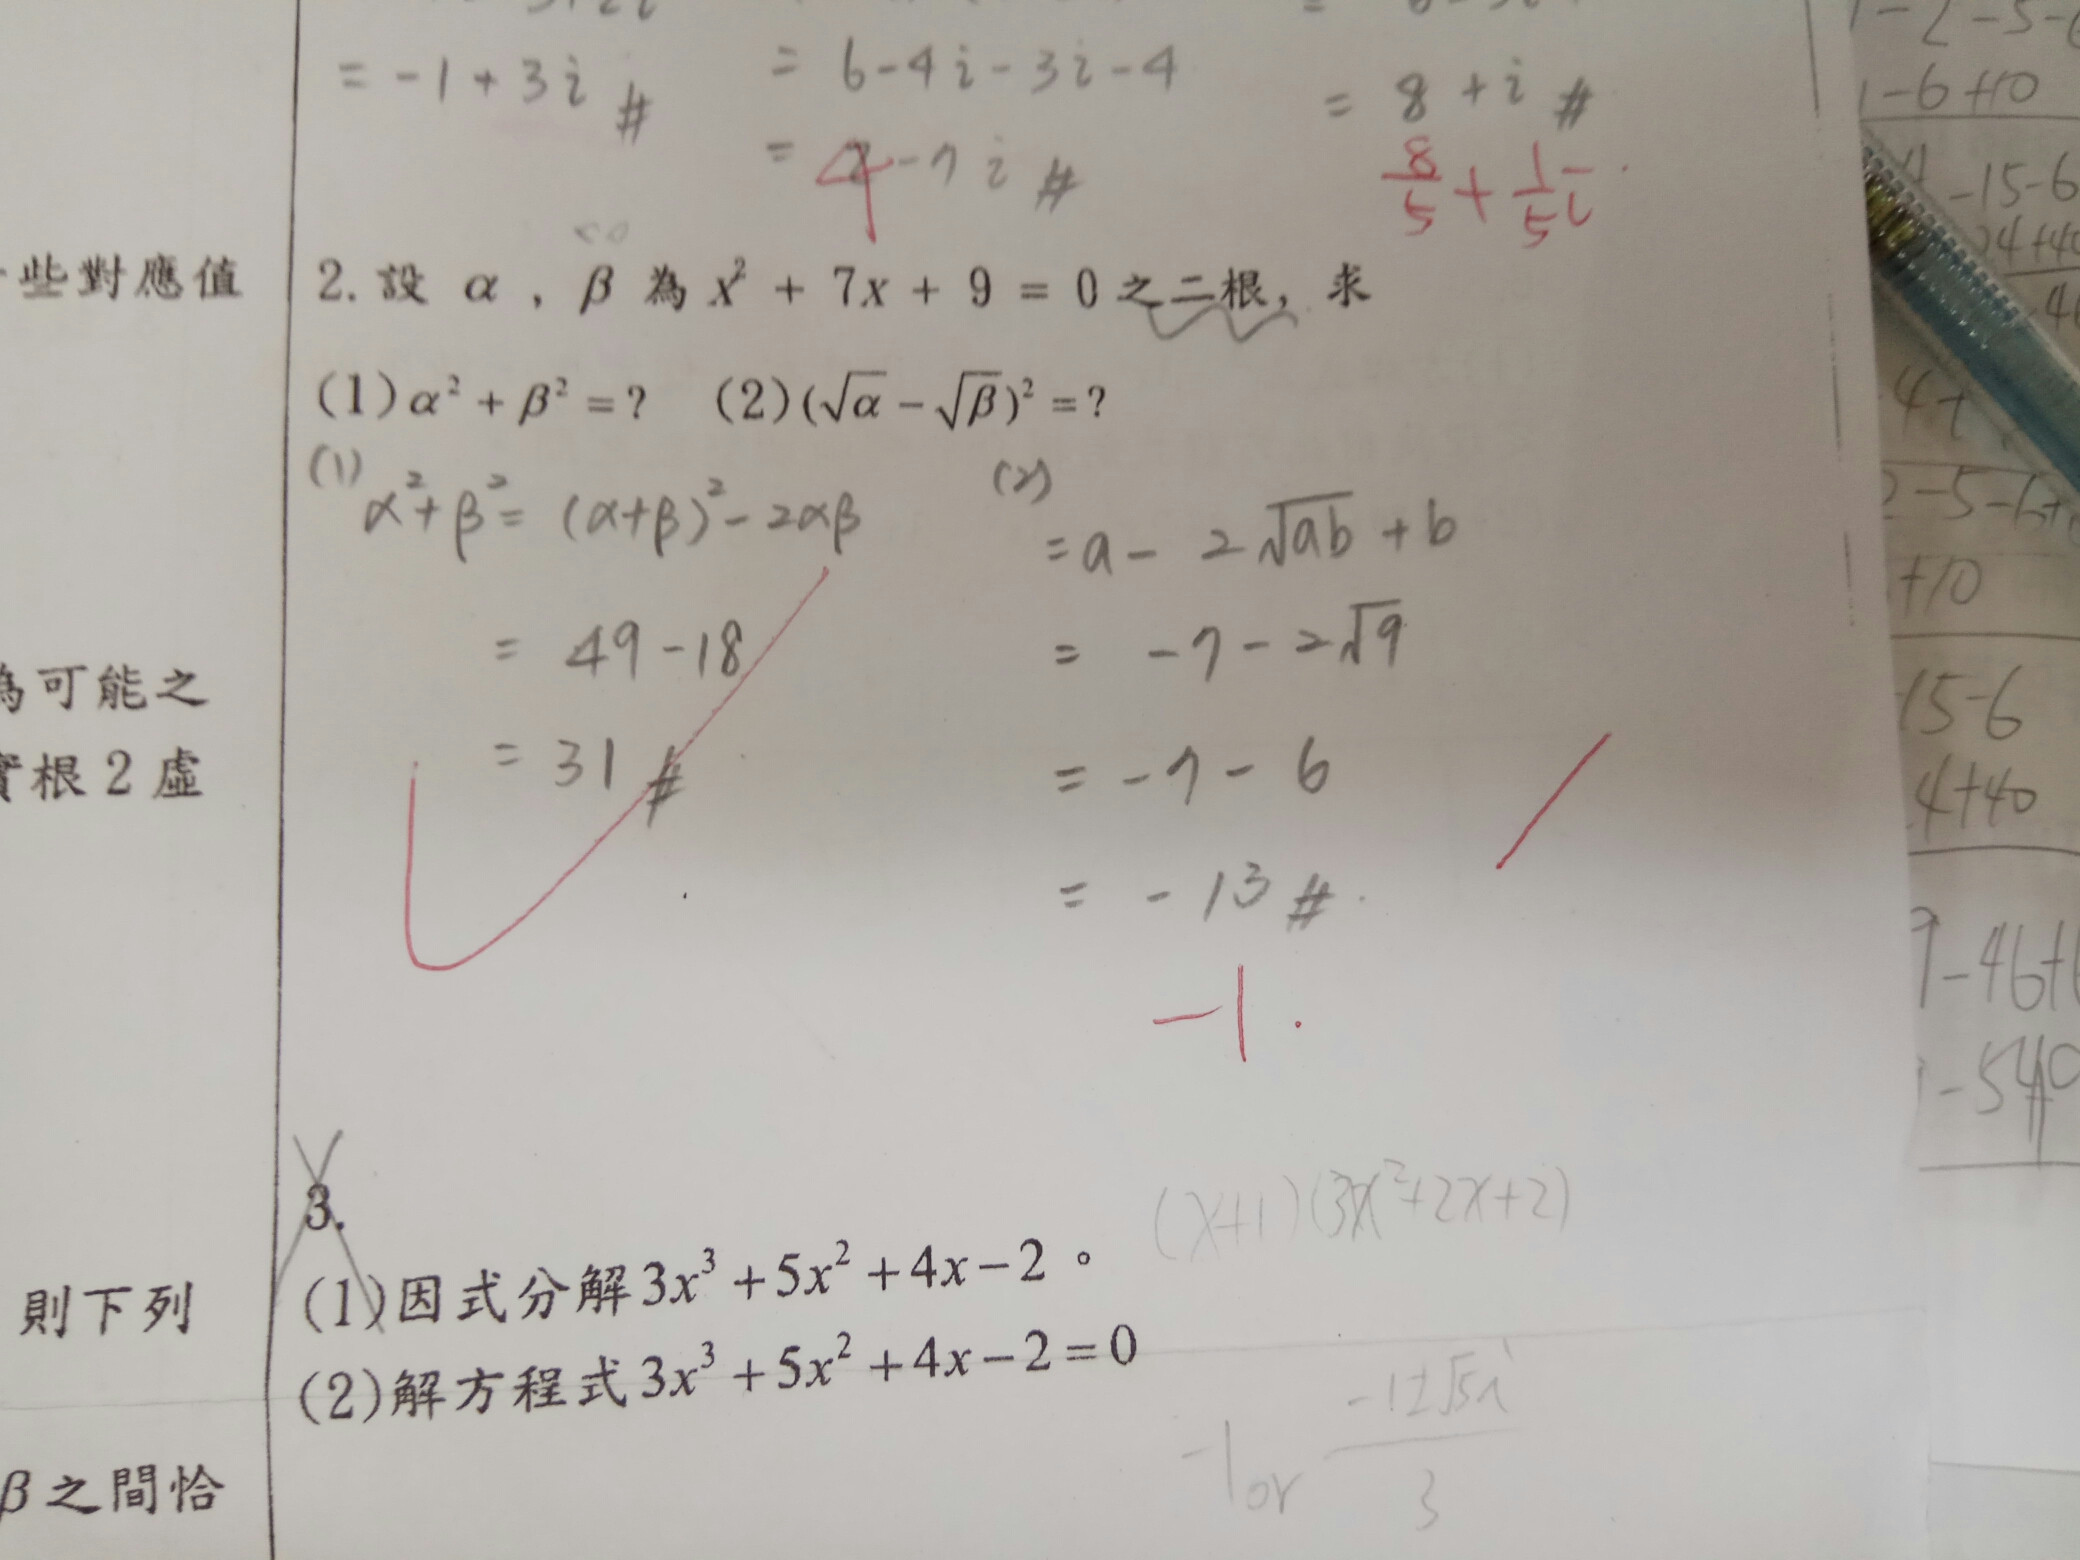 = -1 + 3i #
= 6 - 4i - 3i - 4
= 8 + i #
= 4 - 7i #
8/5 + 1/5 i
些對應值
2. 設 α , β 為 x² + 7x + 9 = 0 之二根, 求
(1) α² + β² = ? (2) (√α - √β)² = ?
(1) α² + β² = (α+β)² - 2αβ
= 49 - 18
= 31 #
(2)
= a - 2√ab + b
= -7 - 2√9
= -7 - 6
= -13 #
-1.
可能之
根 2 虛
3.
(1)因式分解 3x³ + 5x² + 4x - 2。
(x+1)(3x²+2x+2)
(2)解方程式 3x³ + 5x² + 4x - 2 = 0
-1 or (-1±√5i)/3
則下列
β 之間恰
-6+10
-15-6
4+40
2-5-6+
+10
15-6
4+40
9-46+
-540